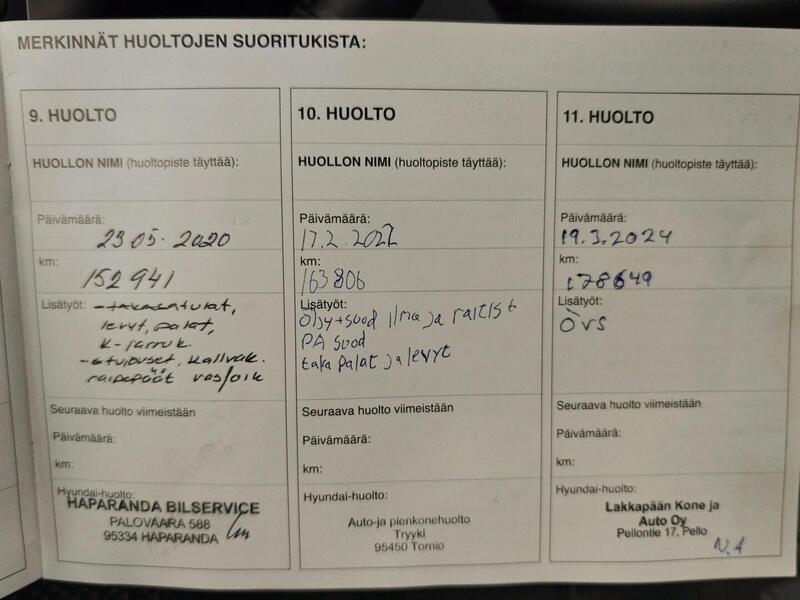 MERKINNÄT HUOLTOJEN SUORITUKISTA:
9. HUOLTO
HUOLLON NIMI (huoltopiste täyttää):
Päivämäärä:
23.05.2020
km:
152 941
Lisätyöt: -takasatulat,
levyt, palat,
K-jarruk.
-etupuset, kallvak.
raidepäät vas/oik
Seuraava huolto viimeistään
Päivämäärä:
km:
Hyundai-huolto:
HAPARANDA BILSERVICE
PALOVAARA 588
95334 HAPARANDA
10. HUOLTO
HUOLLON NIMI (huoltopiste täyttää):
Päivämäärä:
17.2.2022
km:
163806
Lisätyöt:
Öljy+suod ilma ja raitist
PA suod
taka palat ja levyt
Seuraava huolto viimeistään
Päivämäärä:
km:
Hyundai-huolto:
Auto-ja pienkonehuolto
Tryyki
95450 Tornio
11. HUOLTO
HUOLLON NIMI (huoltopiste täyttää):
Päivämäärä:
19.3.2024
km:
178649
Lisätyöt:
ÖVS
Seuraava huolto viimeistään
Päivämäärä:
km:
Hyundai-huolto:
Lakkapään Kone ja
Auto Oy
Pellontie 17, Pello
N.A